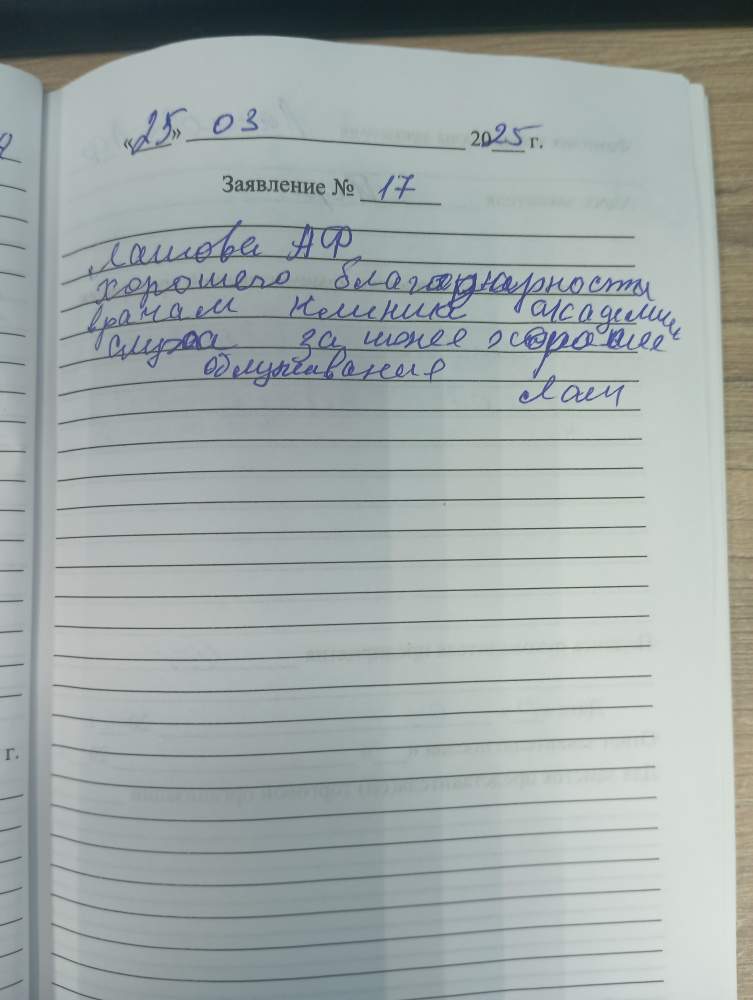 «25» 03 2025 г.
Заявление № 17
Лашова АФ
хорошего благодарности
врачам клиники академии
слуха за хорошее
обслуживания
Лаш
г.